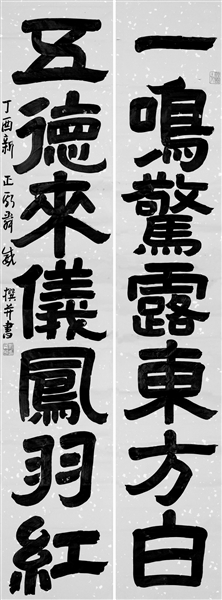 一鳴驚露東方白
五德來儀鳳羽紅
丁酉新正
撰并書